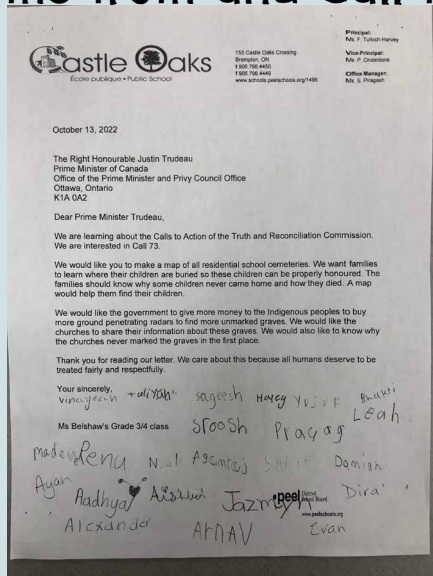 Castle Oaks
École publique • Public School
155 Castle Oaks Crossing
Brampton, ON
t 905.796.4450
f 905.796.4449
www.schools.peelschools.org/1496
Principal:
Ms. F. Tulloch-Harvey
Vice-Principal:
Ms. P. Onsterdonk
Office Manager:
Ms. S. Piragash
October 13, 2022
The Right Honourable Justin Trudeau
Prime Minister of Canada
Office of the Prime Minister and Privy Council Office
Ottawa, Ontario
K1A 0A2
Dear Prime Minister Trudeau,
We are learning about the Calls to Action of the Truth and Reconciliation Commission.
We are interested in Call 73.
We would like you to make a map of all residential school cemeteries. We want families
to learn where their children are buried so these children can be properly honoured. The
families should know why some children never came home and how they died. A map
would help them find their children.
We would like the government to give more money to the Indigenous peoples to buy
more ground penetrating radars to find more unmarked graves. We would like the
churches to share their information about these graves. We would also like to know why
the churches never marked the graves in the first place.
Thank you for reading our letter. We care about this because all humans deserve to be
treated fairly and respectfully.
Your sincerely,
sageesh Harry YUSUF Bhakti
Leah
Ms Belshaw's Grade 3/4 class
Sroosh Prayag
Renu Agamraj Damian
Ayan Aadhya Jazmeyn Dira
peel District School Board
www.peelschools.org
Alexander ArNAV Evan